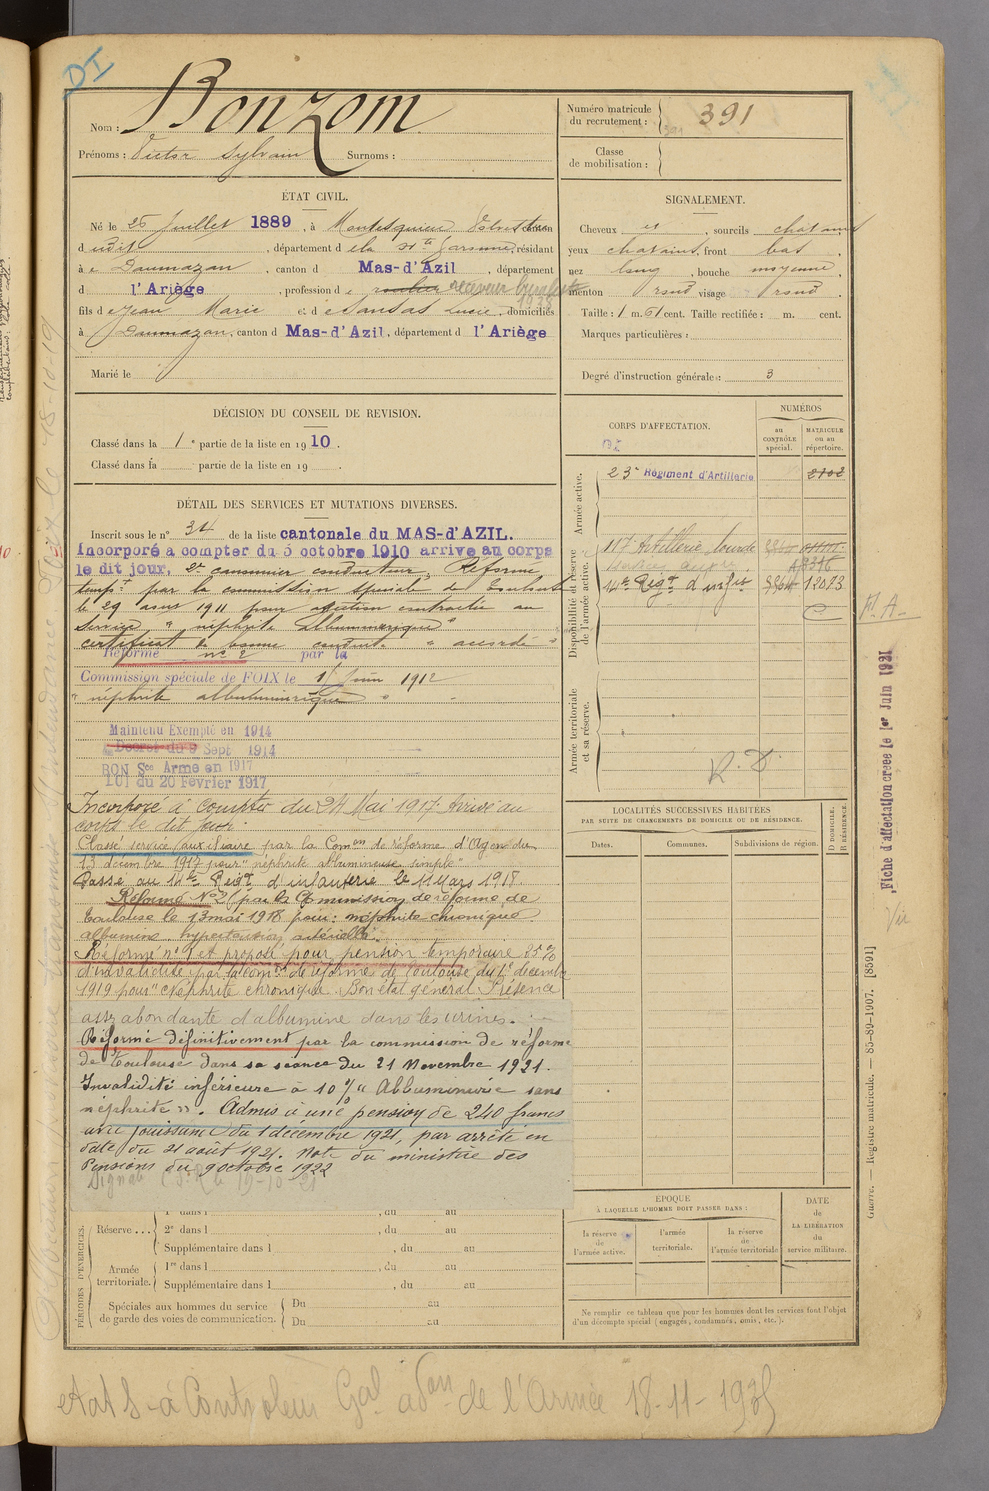 DI
Nom : Bonzom
Prénoms : Victor Sylvain Surnoms :
Numéro matricule du recrutement : 391
Classe de mobilisation :
ÉTAT CIVIL.
Né le 25 Juillet 1889, à Montesquieu Volvestre canton
d udit, département d e la Hte Garonne, résidant
à e Daumazan, canton d Mas-d'Azil, département
d l'Ariège, profession d e receveur buraliste
1938
fils d e Jean Marie et d e Sansas Lucie, domiciliés
à Daumazan, canton d Mas-d'Azil, département d l'Ariège
Marié le
SIGNALEMENT.
Cheveux et, sourcils chatains
yeux chatains, front bas,
nez long, bouche moyenne,
menton rond visage rond.
Taille : 1 m. 61 cent. Taille rectifiée : m. cent.
Marques particulières :
Degré d'instruction générale : 3
DÉCISION DU CONSEIL DE REVISION.
Classé dans la 1e partie de la liste en 1910.
Classé dans la partie de la liste en 19 .
DÉTAIL DES SERVICES ET MUTATIONS DIVERSES.
Inscrit sous le n° 34 de la liste cantonale du MAS-d'AZIL.
Incorporé a compter du 3 octobre 1910 arrivé au corps
le dit jour, 2e canonnier conducteur. Réformé
tempre par la commission spéciale de Toulouse
le 29 aout 1911 pour affection contractée au
service "néphrite albuminurique"
certificat de bonne conduite "accordé"
Réformé n° 2 par la
Commission spéciale de FOIX le 1r Juin 1912
"néphrite albuminurique"
Maintenu Exempté en 1914
Décret du 9 Sept 1914
BON Sce Armé en 1917
LOI du 20 Février 1917
Incorporé à compter du 24 Mai 1917. Arrivé au
corps le dit jour.
Classé service auxiliaire par la Comon de réforme d'Agen du
13 décembre 1917 pour "néphrite albumineuse simple"
Passé au 14e Régt d'infanterie le 11 Mars 1918.
Réformé N°2 par la Commission de réforme de
Toulouse le 13 mai 1918 pour: néphrite chronique
albumine hypertension artérielle.
Réformé n° 1 et proposé pour pension temporaire 25%
d'invalidité par la comon de réforme de Toulouse du 1er décembre
1919 pour "Néphrite chronique. Bon état général. Présence
assez abondante d'albumine dans les urines.
Réformé définitivement par la commission de réforme
de Toulouse dans sa séance du 21 Novembre 1921.
Invalidité inférieure à 10% "Albuminurie sans
néphrite". Admis à une pension de 240 francs
avec jouissance du 1 décembre 1921, par arrêté en
date du 21 août 1921. Note du ministère des
Pensions du 9 octobre 1922
CORPS D'AFFECTATION.
NUMÉROS
au CONTRÔLE spécial.
MATRICULE ou au répertoire.
Armée active.
23e Régiment d'Artillerie 2102
Disponibilité et réserve de l'armée active.
117e Artillerie lourde
14e Régt d'infie 12073
Armée territoriale et sa réserve.
R. D.
Fiche d'affectation créée le 1er Juin 1931
LOCALITÉS SUCCESSIVES HABITÉES
PAR SUITE DE CHANGEMENTS DE DOMICILE OU DE RÉSIDENCE.
Dates. Communes. Subdivisions de région. D DOMICILE. R RÉSIDENCE.
ÉPOQUE
À LAQUELLE L'HOMME DOIT PASSER DANS :
la réserve de l'armée active.
l'armée territoriale.
la réserve de l'armée territoriale
DATE de LA LIBÉRATION du service militaire.
Ne remplir ce tableau que pour les hommes dont les services font l'objet
d'un décompte spécial (engagés, condamnés, omis, etc.).
PÉRIODES D'EXERCICES.
Réserve... 1er dans l , du au
2e dans l , du au
Supplémentaire dans l , du au
Armée territoriale. 1re dans l , du au
Supplémentaire dans l , du au
Spéciales aux hommes du service de garde des voies de communication. Du au
Du au
Guerre. — Registre matricule. — 85-89-1907. [8591]
état S à Controleur Gal adon de l'Armée 18-11-1935